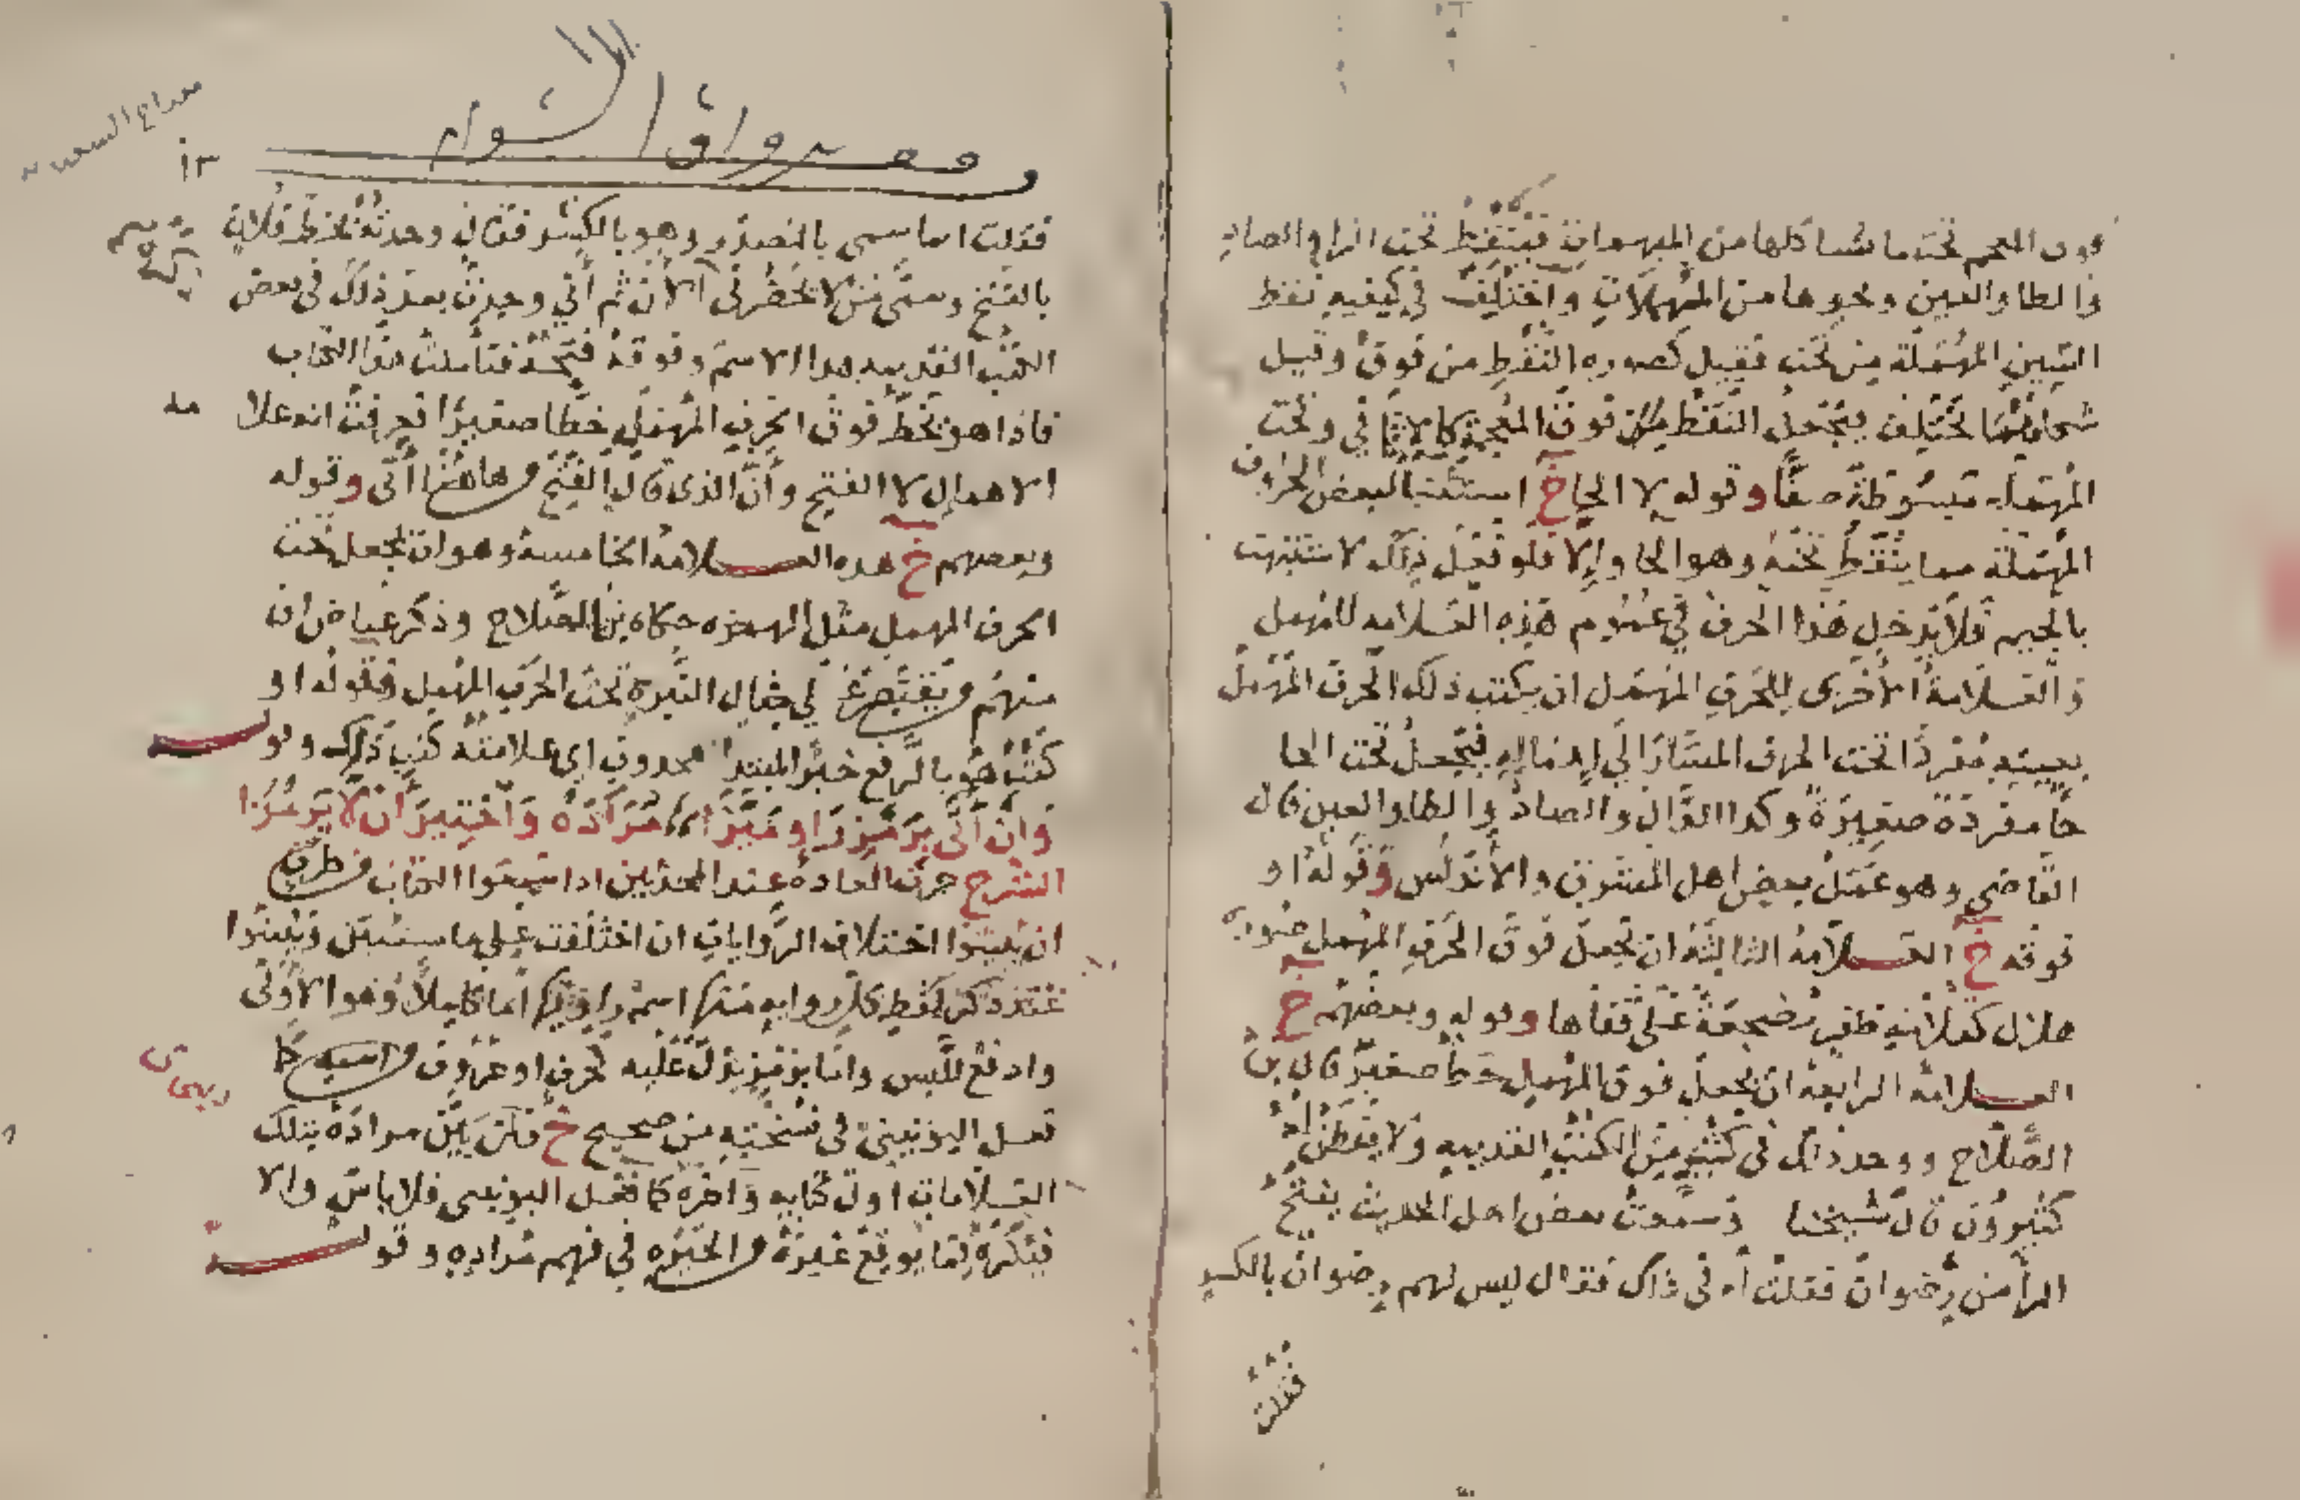 فوق المعجم تحت ما شاكلها من المهملات فينقط تحت الرا والصاد
والطا والعين ونحوها من المهملات واختلف في كيفيه نقط
السين المهملة من تحت فقيل كصوره النقط من فوق وقيل
يجعل النقط من فوق المعجمة كالاثافي وتحت
المهمله مبسوطة صفا وقوله لا الحا خ استثنا لبعض الحروف
المهملة مما ينقط تحته وهو الحا والا فلو فعل ذلك لاشتبهت
بالجيم فلا يدخل هذا الحرف في عموم هذه العلامه للمهمل
والعلامة الاخرى للحرف المهمل ان يكتب ذلك الحرف المهمل
بعينه مفردا تحت الحرف المشار الي اهماله فيجعل تحت الحا
حا مفردة صغيرة وكذا الدال والصاد والطا والعين قال
القاضي وهو عمل بعض اهل المشرق والاندلس وقوله او
فوقه خ العلامة الثالثة ان تجعل فوق الحرف المهمل صورة
هلال كقلامة ظفر مضجعة على قفاها وقوله وبعضهم خ
العلامة الرابعة ان يجعل فوق المهمل خطا صغيرا قال بن
الصلاح ووجد ذلك في كثير من الكتب القديمه ولا يفطن له
كثيرون قال شيخنا وسمعت بعض اهل الحديث يفتح
الرا من رضوان فقلت له في ذلك فقال ليس لهم رضوان بالكسر
فقلت
١٣
فقلت انما سمي بالمصدر وهو بالكسر فقال وجدته بخط فلان
بالفتح وسمى من لا يحضرني الان ثم اني وجدت بعد ذلك في بعض
الكتب القديمه هذا الاسم وفوقه فتحة فتأملت هذا الكتاب
فاذا هو يخط فوق الحرف المهمل خطا صغيرا فعرفت انه علا
مه
الاهمال لا الفتح وأن الذي قاله بالفتح من هاهنا أتى وقوله
وبعضهم خ هذه العلامة الخامسة وهو ان تجعل تحت
الحرف المهمل مثل الهمزه حكاه بن الصلاح وذكر عياض ان
منهم من يقتصر على مثال النبرة تحت الحرف المهمل فقوله او
كتب هو بالرفع خبر المبتدا محذوف اي علامته كتب ذلك وقوله
وان أتى برمز راو ميزا مراده واختير أن لا يرمزا
الشرح جرت العادة عند المحدثين اذا سمعوا الكتاب من طرق
ان يبينوا اختلاف الروايات ان اختلفت على ما سنبين وبينوا
عند ذكر لفظ كل روايه منها اسم راويها اما كاملا وهو الاولى
وادفع للبس واما برمز يدل عليه بحرف او حروف من اسمه كما
فعل اليونيني في نسخته من صحيح خ فان بين مراده بتلك
العلامات اول كتابه واخره كما فعل اليونيني فلا باس والا
فيكره لما يوقع غيره من الحيره في فهم مراده وقوله